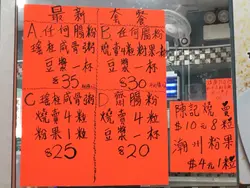 最新 套餐
A任何腸粉
瑤柱咸骨粥
豆漿一杯
$35
B任何腸粉
燒賣4粒粉果1
豆漿一杯
$30
C瑤柱咸骨粥
燒賣4粒
粉果1粒
$25
D齋腸粉
燒賣4粒
豆漿一杯
$20
陳記燒賣
$10元8粒
潮州粉果
$4元1粒